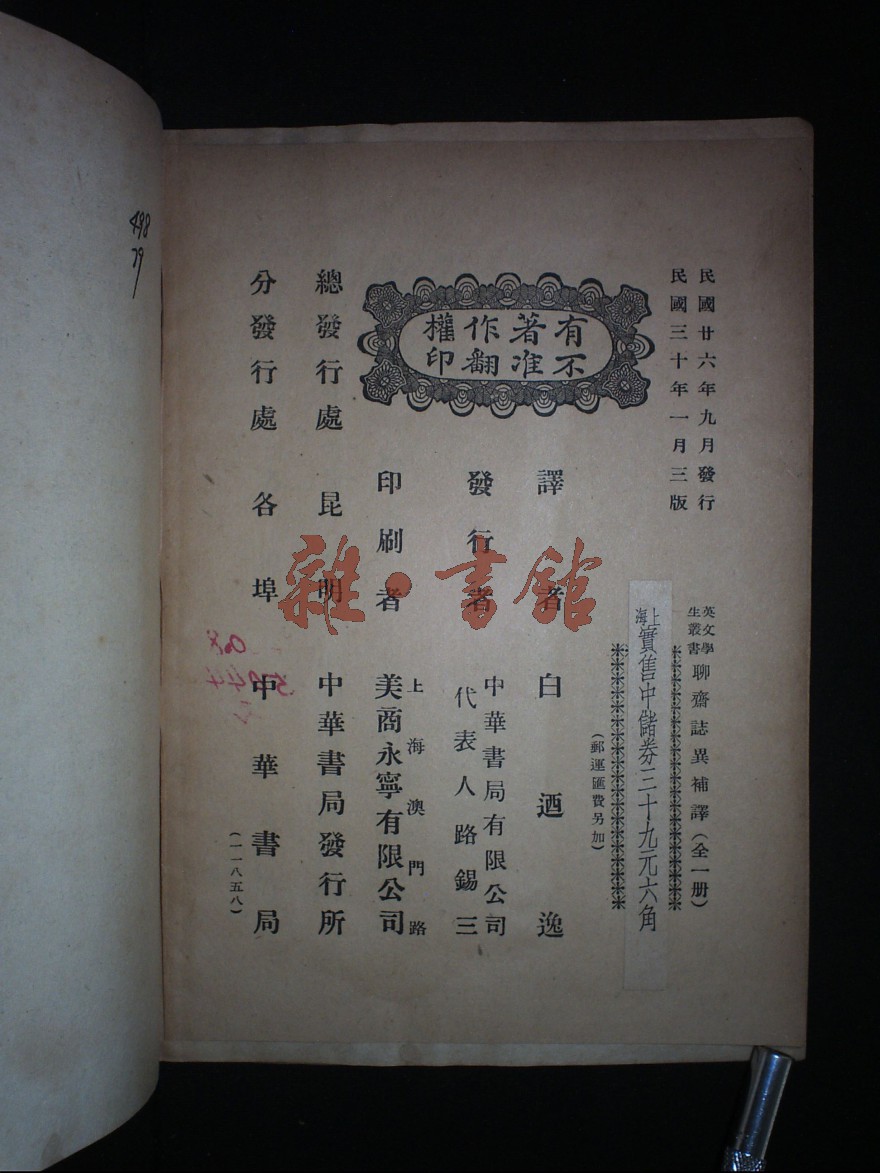 民國廿六年九月發行
民國三十年一月三版
英文學生叢書
聊齋誌異補譯(全一册)
上海實售中儲券三十九元六角
(郵運匯費另加)
有著作權
不准翻印
譯者 白迺逸
發行者 中華書局有限公司
代表人路錫三
印刷者 上海澳門路
美商永寧有限公司
總發行處 昆明 中華書局發行所
分發行處 各埠 中華書局
(一一八五八)
498
79
雜·書館